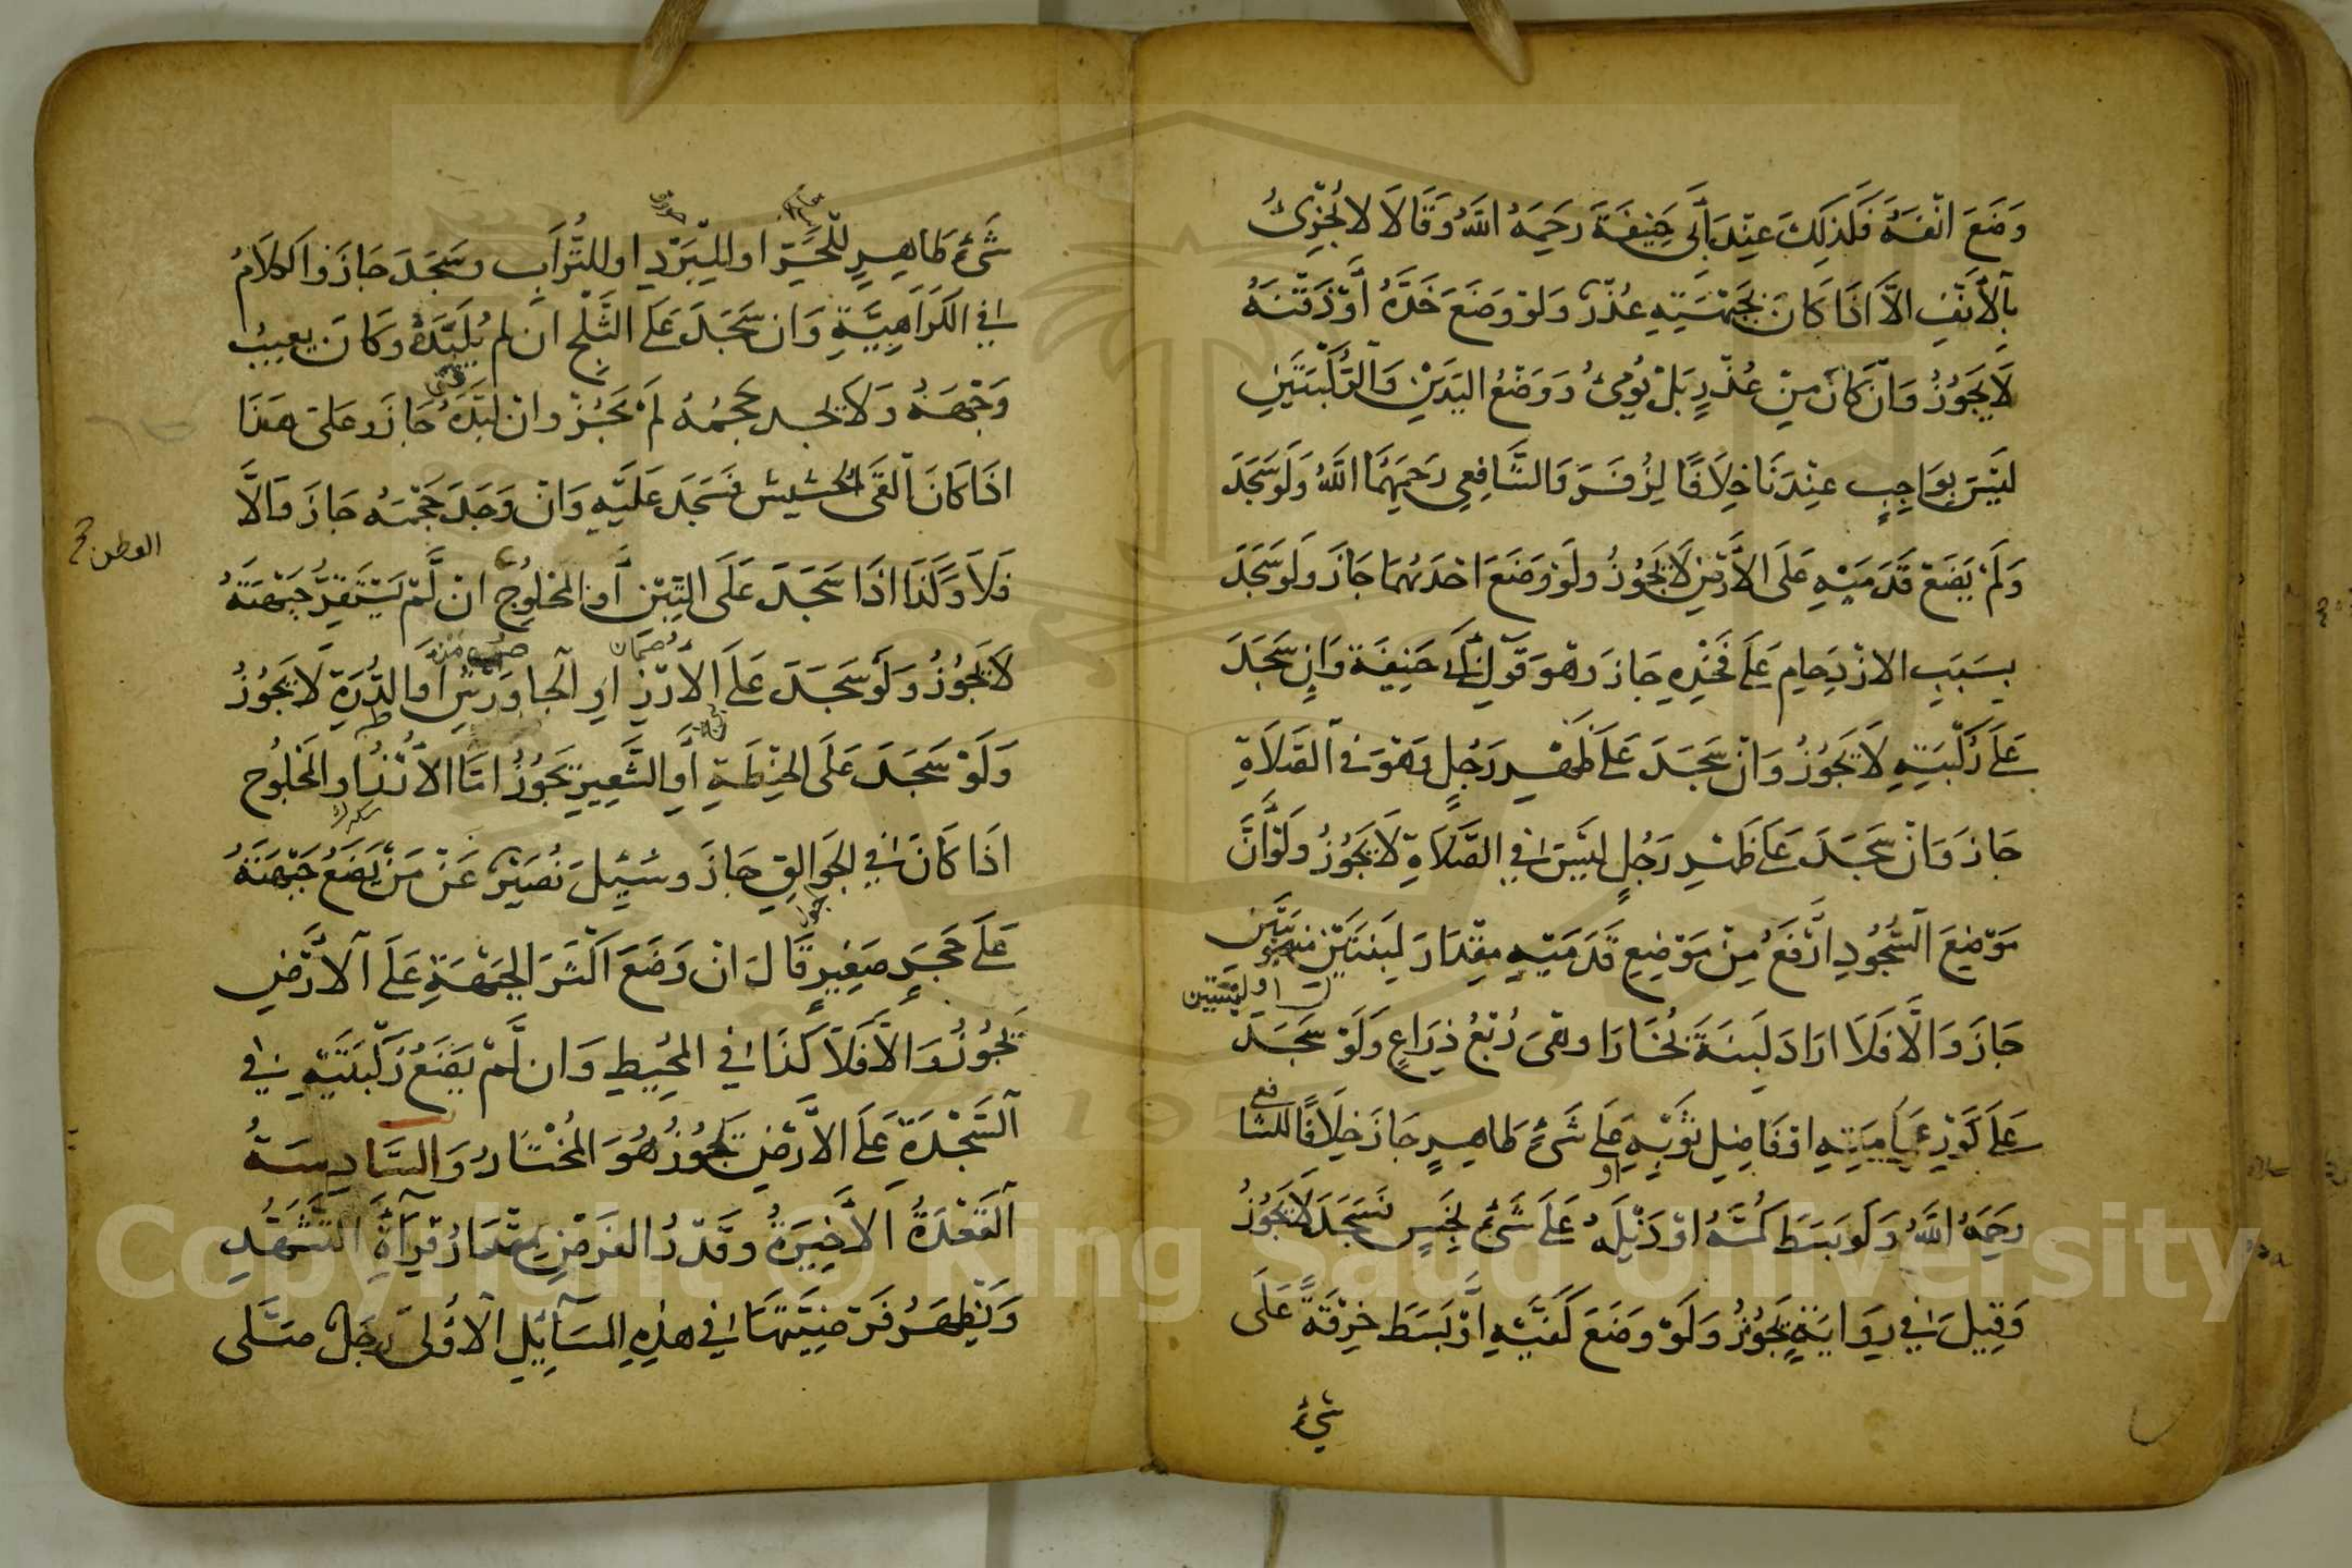 وَضَعَ اَنْفَهُ فَلِذٰلِكَ عِنْدَ اَبِى حَنِيفَةَ رَحِمَهُ اللّٰهُ وَقَالَا لَا يُجْزِئُ
بِالْاَنْفِ اِلَّا اِذَا كَانَ بِجَبْهَتِهِ عُذْرٌ وَلَوْ وَضَعَ خَدَّهُ اَوْ ذَقَنَهُ
لَا يَجُوزُ وَاِنْ كَانَ مِنْ عُذْرٍ بَلْ يُومِئُ وَوَضْعُ الْيَدَيْنِ وَالرُّكْبَتَيْنِ
لَيْسَ بِوَاجِبٍ عِنْدَنَا خِلَافًا لِزُفَرَ وَالشَّافِعِى رَحِمَهُمَا اللّٰهُ وَلَوْ سَجَدَ
وَلَمْ يَضَعْ قَدَمَيْهِ عَلَى الْاَرْضِ لَا يَجُوزُ وَلَوْ وَضَعَ اِحْدٰيهُمَا جَازَ وَلَوْ سَجَدَ
بِسَبَبِ الْازْدِحَامِ عَلَى فَخْذِهِ جَازَ وَهُوَ قَوْلُ اَبِى حَنِيفَةَ وَاِنْ سَجَدَ
عَلَى رُكْبَتِهِ لَا يَجُوزُ وَاِنْ سَجَدَ عَلَى ظَهْرِ رَجُلٍ وَهُوَ فِى الصَّلَاةِ
جَازَ وَاِنْ سَجَدَ عَلَى ظَهْرِ رَجُلٍ لَيْسَ فِى الصَّلَاةِ لَا يَجُوزُ وَلَوْ اَنَّ
مَوْضِعَ السُّجُودِ اَرْفَعُ مِنْ مَوْضِعِ قَدَمَيْهِ مِقْدَارَ لَبِنَتَيْنِ مَنْصُوبَتَيْنِ
جَازَ وَاِلَّا فَلَا اَرَادَ لَبِنَةَ بُخَارَا وَهِىَ رُبْعُ ذِرَاعٍ وَلَوْ سَجَدَ
عَلَى كَوْرِ عِمَامَتِهِ اَوْ فَاضِلِ ثَوْبِهِ عَلَى شَىْءٍ طَاهِرٍ جَازَ خِلَافًا لِلشَّافِعِى
رَحِمَهُ اللّٰهُ وَلَوْ بَسَطَ كُمَّهُ اَوْ ذَيْلَهُ عَلَى شَىْءٍ نَجِسٍ فَسَجَدَ لَا يَجُوزُ
وَقِيلَ فِى رِوَايَةٍ يَجُوزُ وَلَوْ وَضَعَ كَفَّيْهِ اَوْ بَسَطَ خِرْقَةً عَلَى
شَىْءٍ
شَىْءٍ طَاهِرٍ لِلْحَرِّ اَوِ لِلْبَرْدِ اَوِ للتُّرَابِ وَسَجَدَ جَازَ وَالْكَلَامُ
فِى الْكَرَاهِيَّةِ وَاِنْ سَجَدَ عَلَى الثَّلْجِ اِنْ لَمْ يُلَبِّدْهُ وَكَانَ يَغِيبُ
وَجْهُهُ وَلَا يَجِدُ حَجْمَهُ لَمْ يَجُزْ وَاِنْ لَبَّدَهُ جَازَ وَعَلَى هَذَا
اِذَا كَانَ اَلْقَى الْحَشِيشَ فَسَجَدَ عَلَيْهِ وَاِنْ وَجَدَ حَجْمَهُ جَازَ وَاِلَّا
فَلَا وَكَذَا اِذَا سَجَدَ عَلَى التِّبْنِ اَوِ الْمَحْلُوجِ اِنْ لَمْ يَسْتَقِرَّ جَبْهَتُهُ
القطن
لَا يَجُوزُ وَلَوْ سَجَدَ عَلَى الْاَرُزِّ اَوِ الْجَاوَرْسِ اَوِ الذُّرَةِ لَا يَجُوزُ
وَلَوْ سَجَدَ عَلَى الْحِنْطَةِ اَوِ الشَّعِيرِ يَجُوزُ اَمَّا الْاَرُزُّ اَوِ الْمَحْلُوجُ
اِذَا كَانَ فِى الْجَوَالِقِ جَازَ وَسُئِلَ نُصَيْرٌ عَنْ مَنْ يَضَعُ جَبْهَتَهُ
عَلَى حَجَرٍ صَغِيرٍ قَالَ اِنْ وَضَعَ اَكْثَرَ الْجَبْهَةِ عَلَى الْاَرْضِ
يَجُوزُ وَاِلَّا فَلَا كَذَا فِى الْمُحِيطِ وَاِنْ لَمْ يَضَعْ رُكْبَتَيْهِ فِى
السَّجْدَةِ عَلَى الْاَرْضِ يَجُوزُ هُوَ الْمُخْتَارُ وَالسَّادِسَةُ
اَلْقَعْدَةُ الْاَخِيرَةُ وَقَدْرُ الْفَرْضِ مِقْدَارُ قِرَآءَةِ التَّشَهُّدِ
وَيَظْهَرُ فَرْضِيَّتُهَا فِى هٰذِهِ الْمَسَآئِلِ الْاُولٰى رَجُلٌ صَلَّى
Copyright © King Saud University